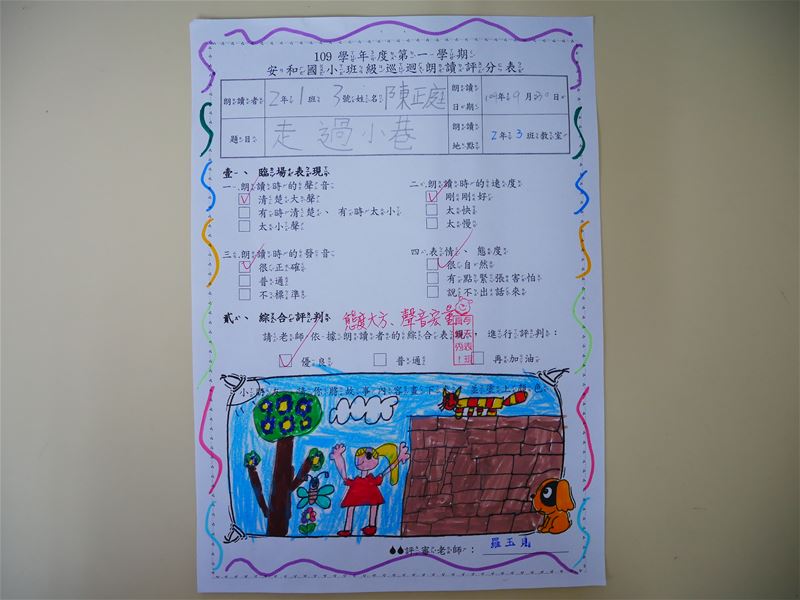 109 學年度第一學期
安和國小班級巡迴朗讀評分表
朗讀者 2年1班 3號姓名 陳正庭 朗讀日期 109年9月30日
題目 走過小巷 朗讀地點 2年3班教室
壹、臨場表現
一、朗讀時的聲音 二、朗讀時的速度
清楚大聲 剛剛好
有時清楚、有時太小 太快
太小聲 太慢
三、朗讀時的發音 四、表情、態度
很正確 很自然
普通 有點緊張害怕
不標準 說不出話來
貳、綜合評判 態度大方、聲音宏量
請老師依據朗讀者的綜合表現,進行評判:
優良 普通 再加油
小朋友,請你將故事內容畫下 並塗上顏色
評審老師:羅玉